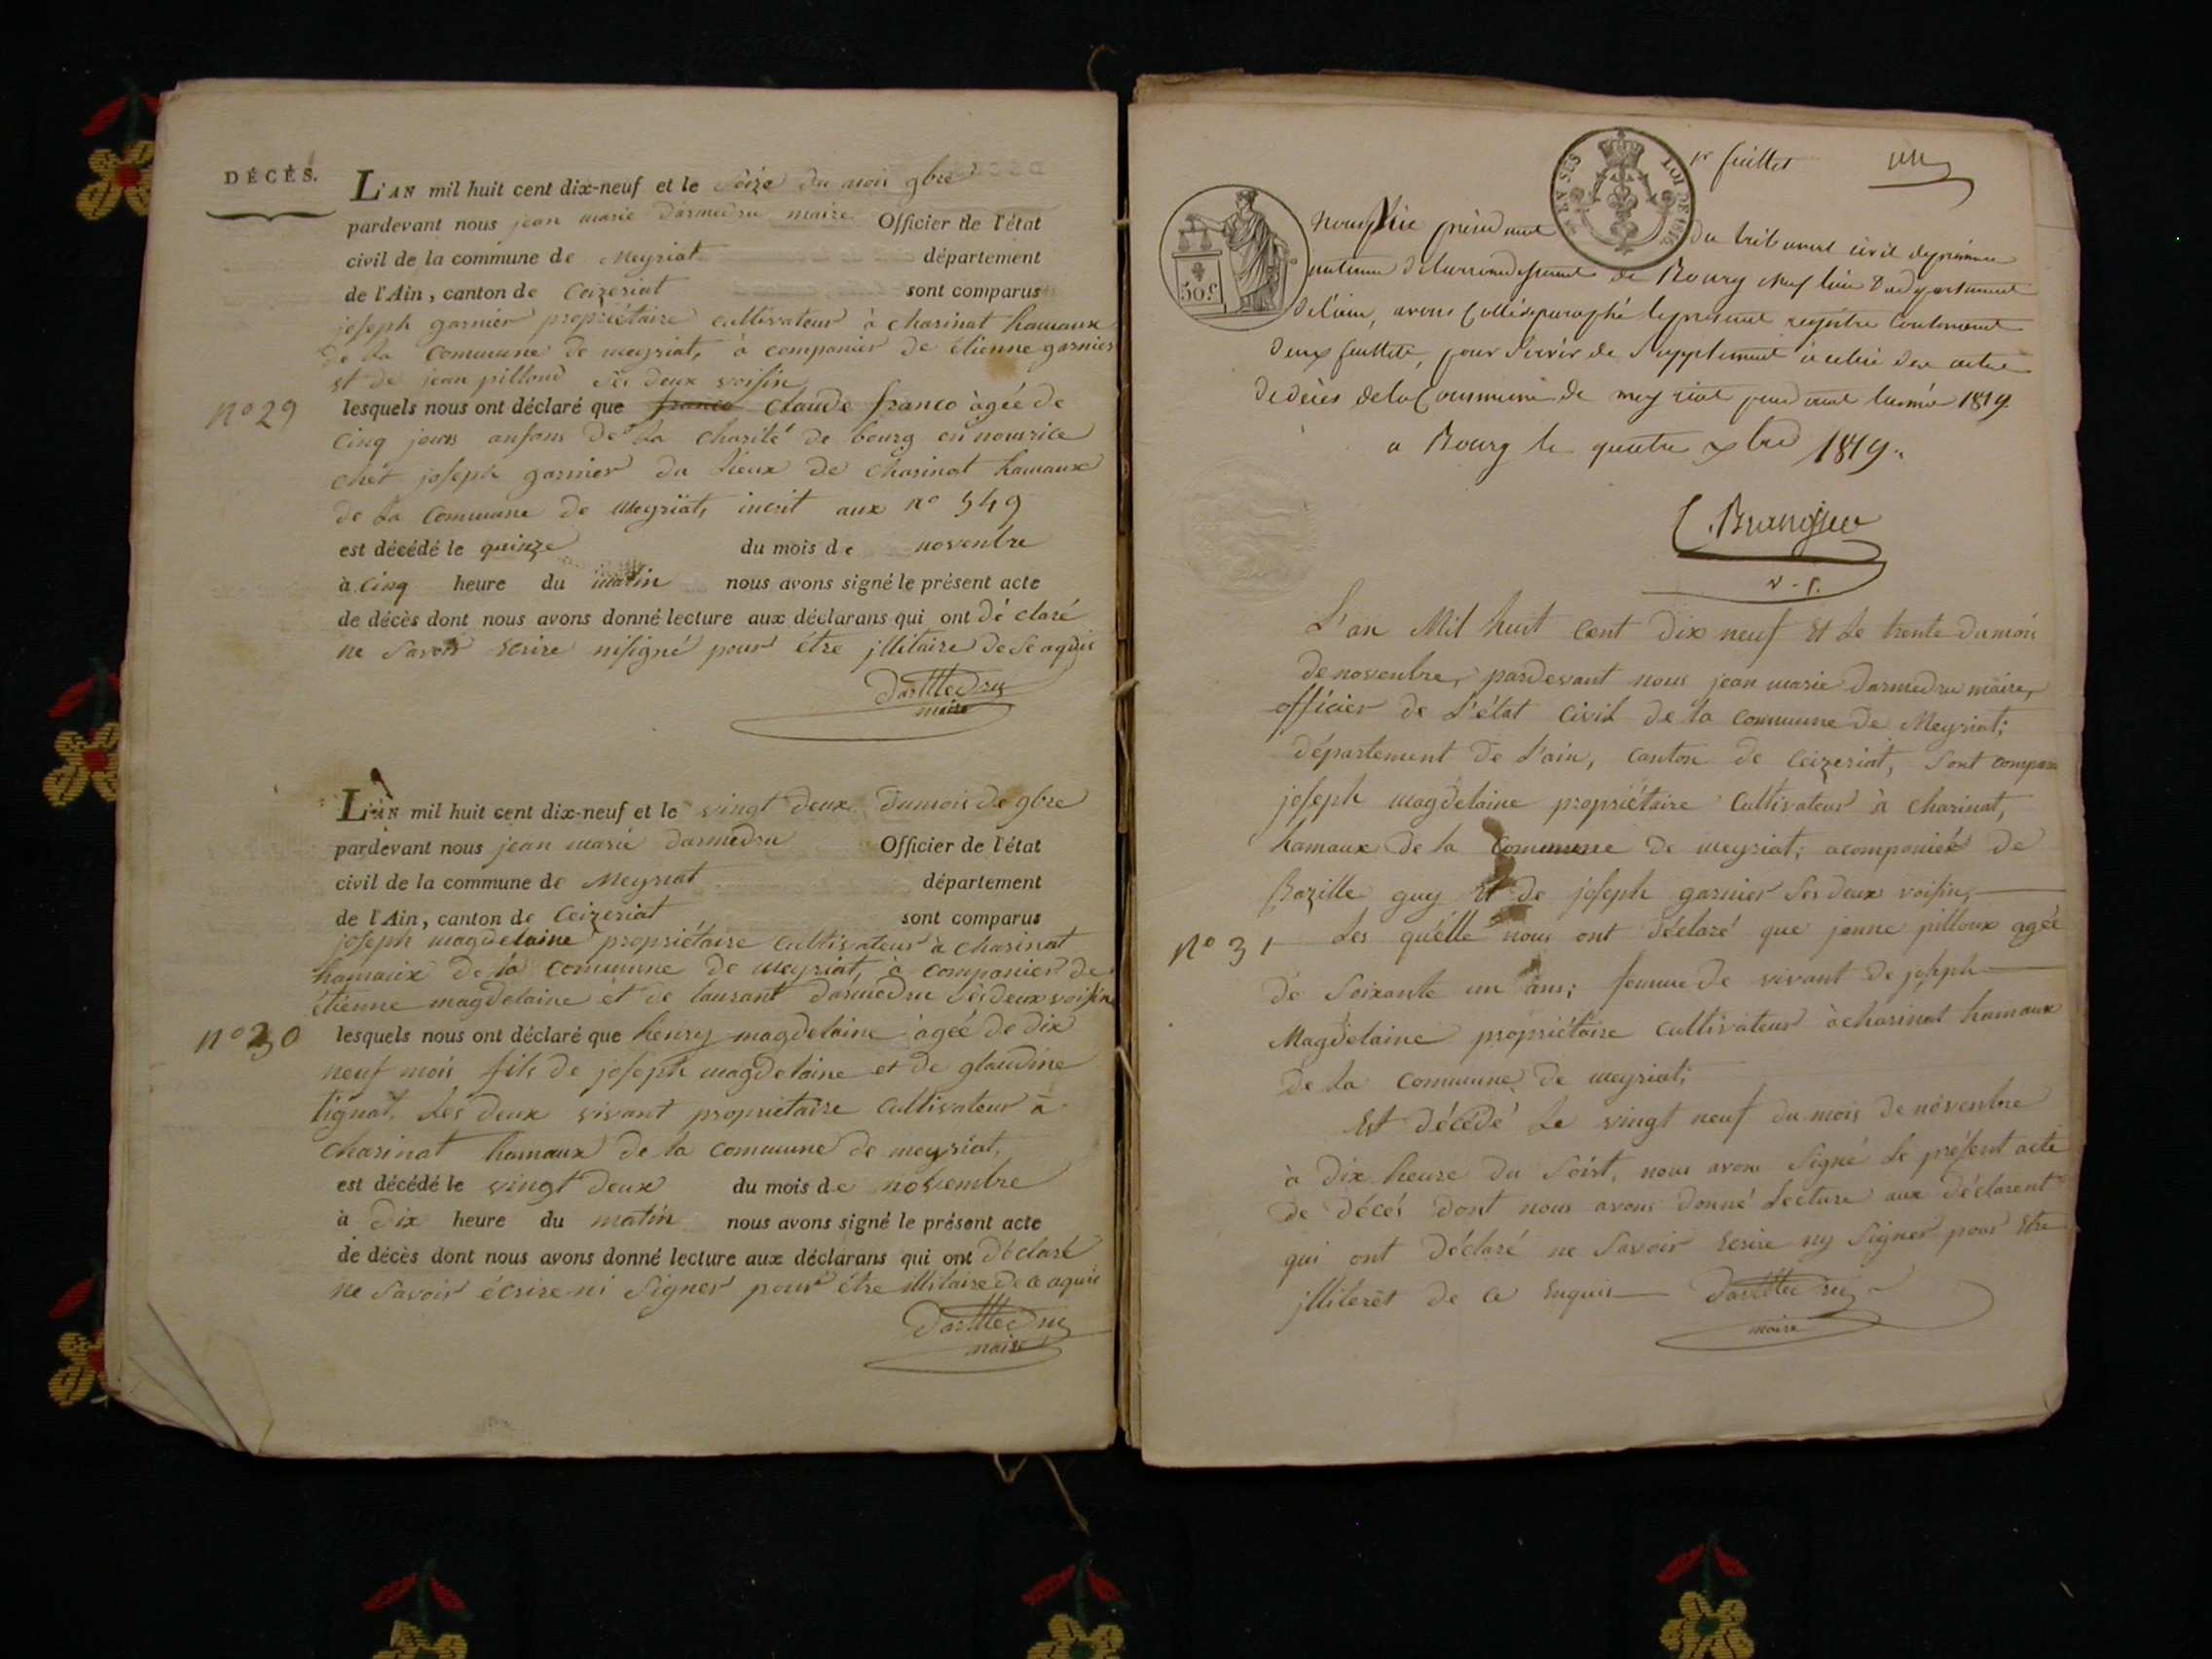 DÉCÈS.
L'AN mil huit cent dix-neuf et le seize du mois 9bre
pardevant nous jean marie darmedru maire Officier de l'état
civil de la commune de Meyriat département
de l'Ain, canton de Ceizeriat sont comparus
joseph garnier propriétaire cultivateur à charinat hamaux
de la commune de meyriat, à companier de étienne garnier
et de jean pilloud ses deux voisin
n° 29
lesquels nous ont déclaré que franco claude franco àgée de
cinq jours anfans de la charité de bourg en nourice
chét joseph garnier du lieux de charinat hamaux
de la commune de meyriat, incrit aux n° 549
est décédé le quinze du mois de novenbre
à cinq heure du matin nous avons signé le présent acte
de décès dont nous avons donné lecture aux déclarans qui ont dé claré
ne savoir écrire nisigné pour étre jllitaire de se aquis
darMedru
maire
L'AN mil huit cent dix-neuf et le vingt deux dumois de 9bre
pardevant nous jean marie darmedru Officier de l'état
civil de la commune de Meyriat département
de l'Ain, canton de Ceizeriat sont comparus
joseph magdelaine propriétaire cultivateur à charinat
hamaux de la commune de meyriat, à companier de
étienne magdelaine et de laurant darmedru ses deux voisin
n° 30
lesquels nous ont déclaré que henry magdelaine àgée de dix
neuf mois fils de joseph magdelaine et de glaudine
tignat, les deux vivant propriétaire cultivateur à
charinat hamaux de la commune de meyriat,
est décédé le vingt deux du mois de novembre
à dix heure du matin nous avons signé le présent acte
de décès dont nous avons donné lecture aux déclarans qui ont déclaré
ne savoir écrire ni signer pour étre illitaire de ce aquis
darMedru
maire
1r feuillet
LOI DE 1816
50 c
nous président du tribunal civil de première
instance de l'arrondissement de Bourg chef lieu du département
de l'ain, avons cotté & paraphé le présent registre contenant
deux feuillets, pour servir de supplement à celui des actes
de décès de la Commune de meyriat pendant l'année 1819
a Bourg le quatre xbre 1819.
v. p.
L'an Mil huit cent dix neuf et le trente dumois
de novenbre, pardevant nous jean marie darmedru maire,
officier de l'état civil de la commune de Meyriat,
département de l'ain, canton de Ceizeriat, sont compara
joseph magdelaine propriétaire cultivateur à charinat,
hamaux de la commune de meyriat; acompanier de
Bazille guy et de joseph garnier ses deux voisin,
n° 31
Les quélle nous ont déclaré que janne pilloux agée
dé soixante un ans; femme de vivant de joseph
Magdelaine propriétaire cultivateur à charinat hamaux
de la commune de meyriat,
est décédé le vingt neuf du mois de novenbre
à dix heure du soirt, nous avons signé le présent acte
de décés dont nous avons donné lecture aux déclarent
qui ont déclaré ne savoir écrire ny signer pour étre
jlliterét de ce enquis darMedru
maire